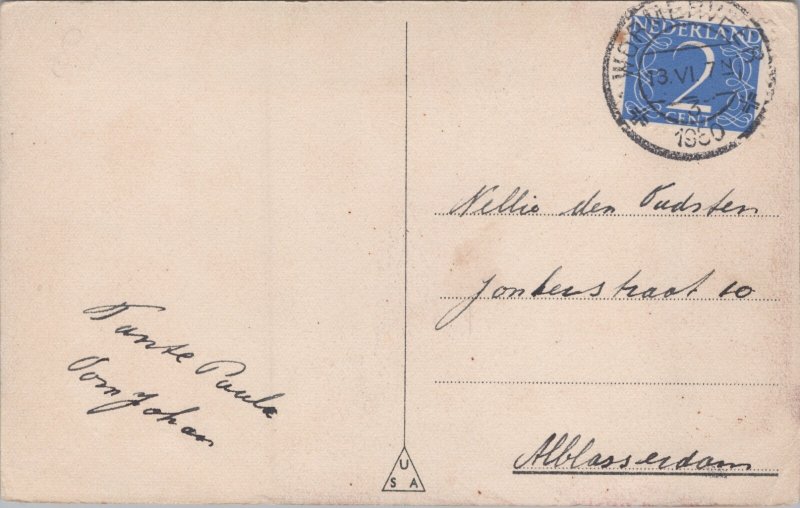 NEDERLAND
2
CENT
WORMERVEER
13 VI
1950
Nellie den Oudsten
Jonkerstraat 10
Alblasserdam
Tante Paula
Oom Johan
U
S A